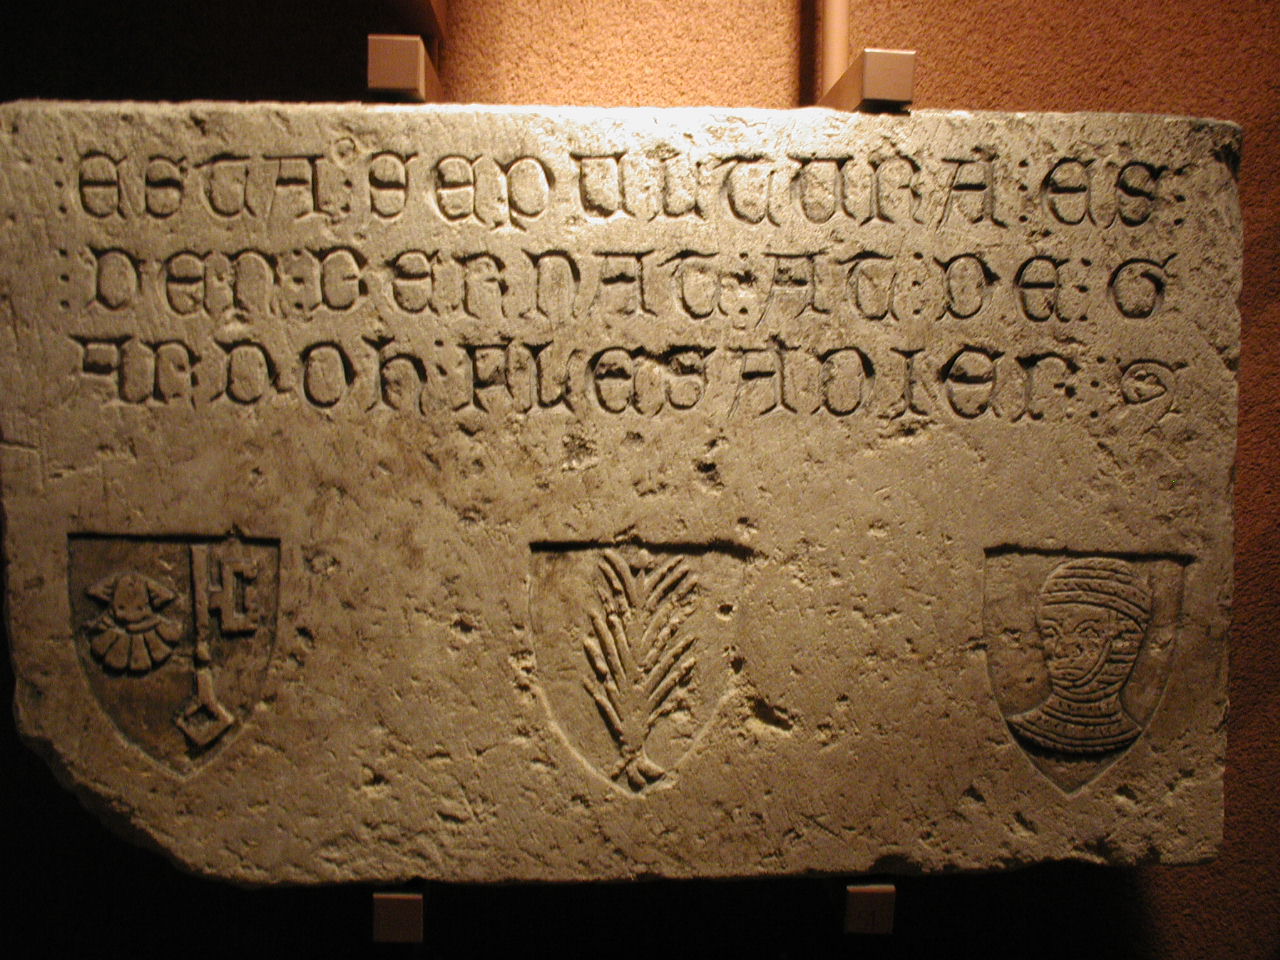 : ESTA : SEPULTURA : ES :
: DEN : BERNAT : AT : DE : G
ARDOH : FLESADIER :